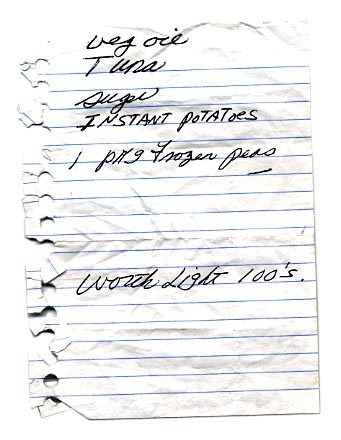 veg oil
Tuna
sugar
INSTANT POTATOES
1 pkg frozen peas
Worth Light 100's.